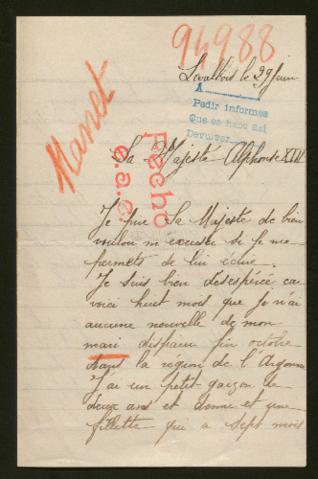 94988
Levallois le 29 Juin
A
Pedir informes
Que se haga así
Devolver
Manet
Sa Majesté Alphonse XIII
Fecho
e.a.c.
Je prie Sa Majesté de bien
vouloir m'excuser si je me
permets de lui écrire.
Je suis bien désespérée car
voici huit mois que je n'ai
aucune nouvelle de mon
mari disparu fin octobre
dans la région de l'Argonne
J'ai un petit garçon de
deux ans et demie et une
fillette qui a sept mois